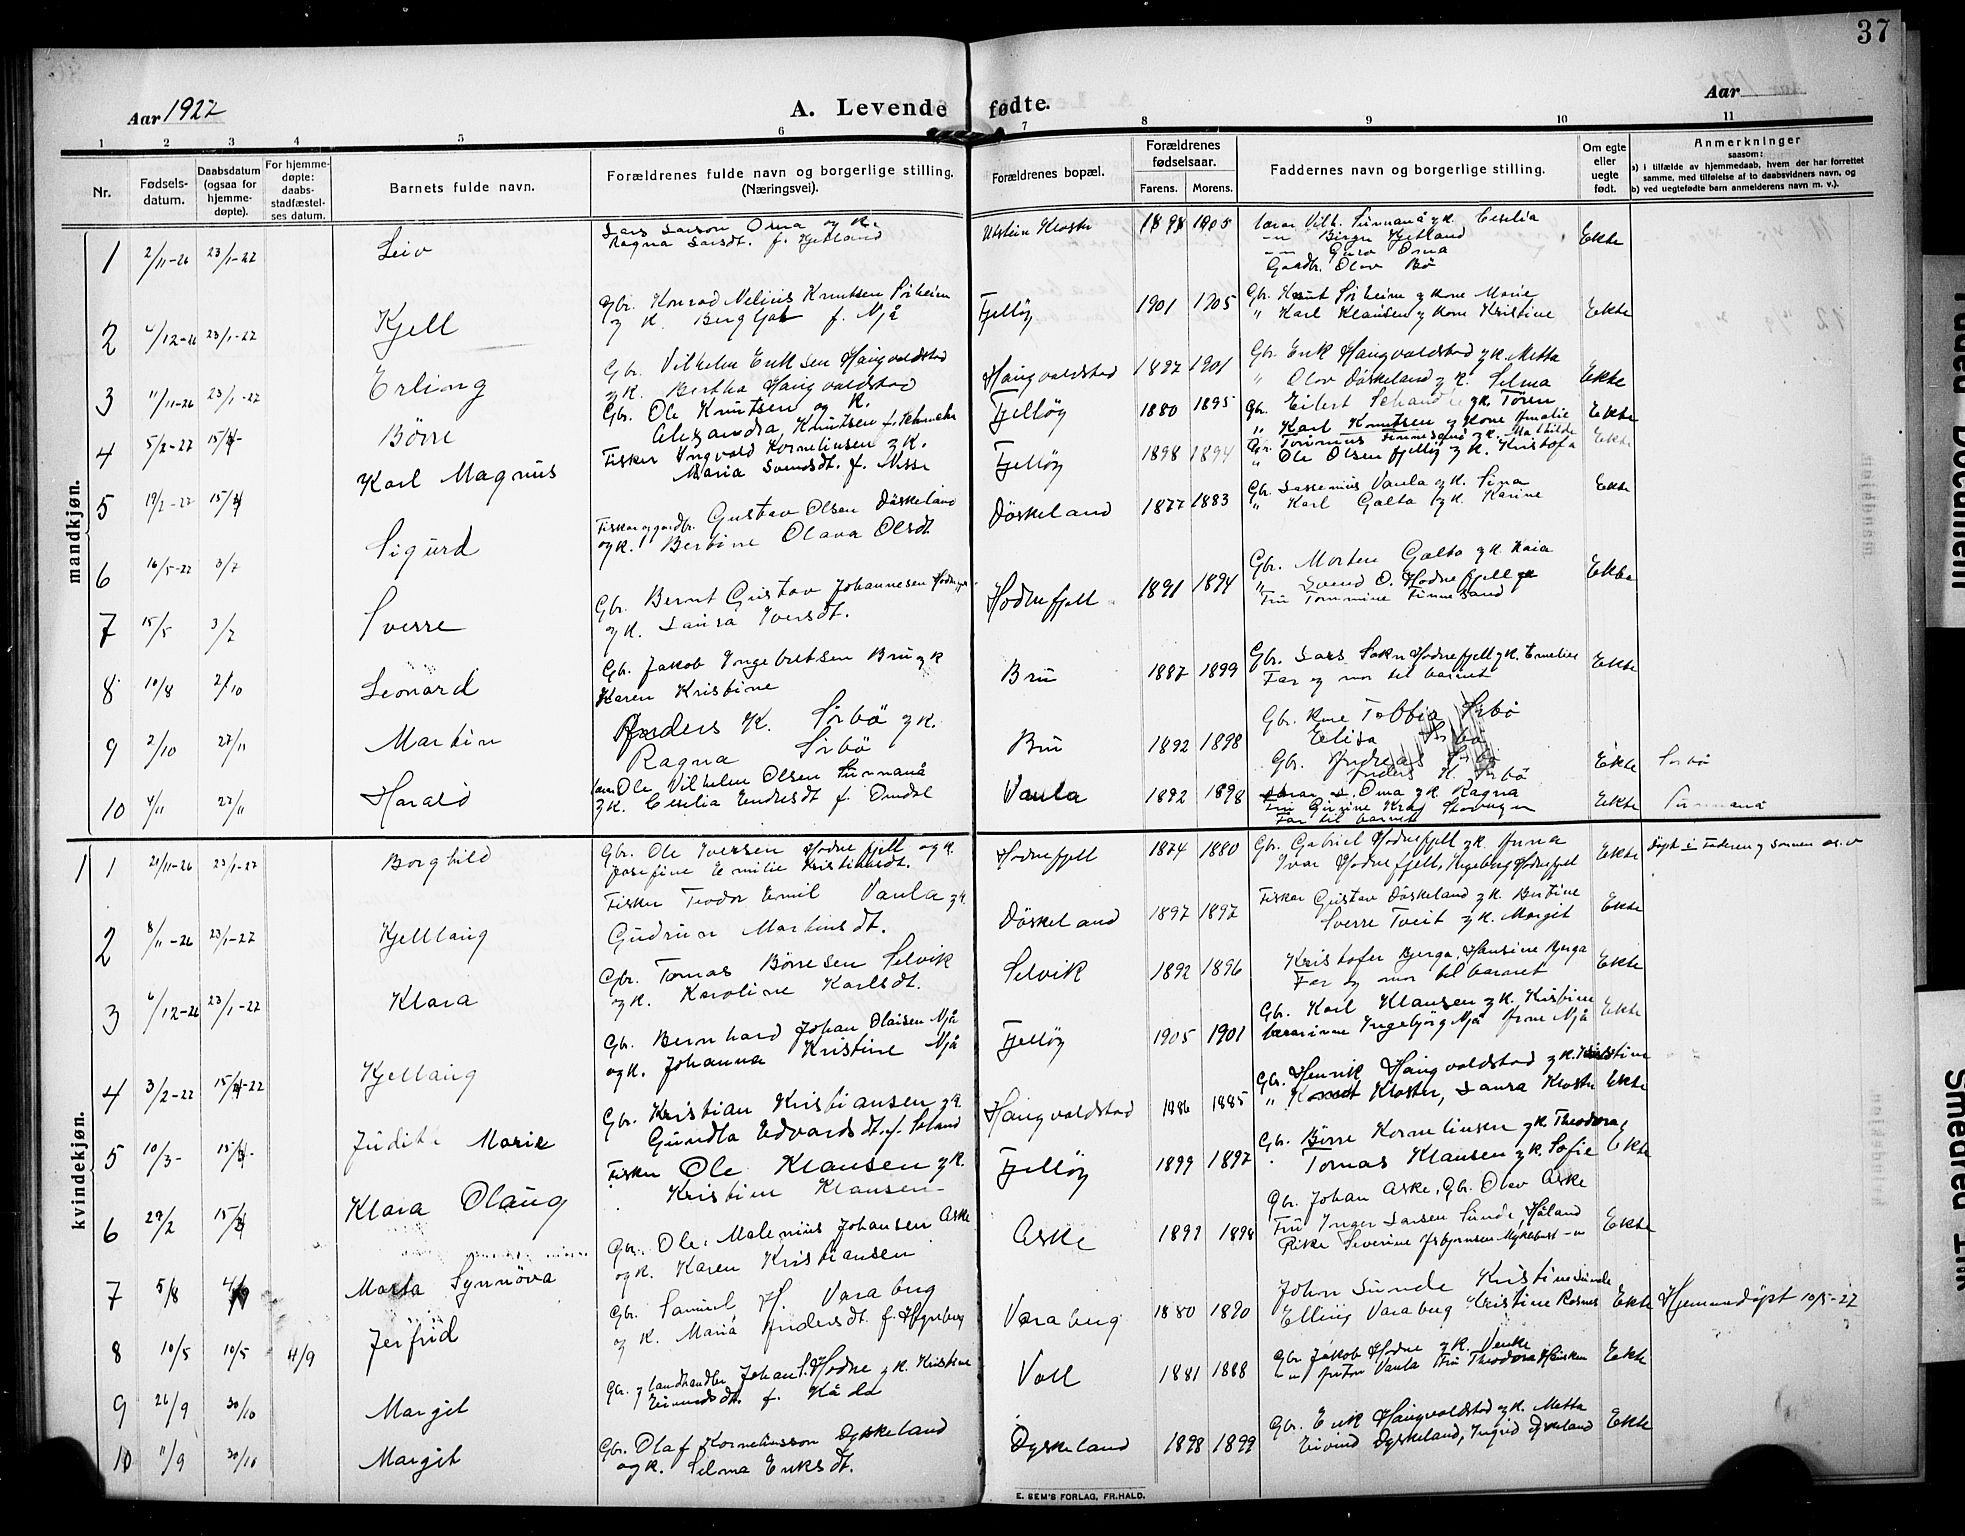 37
Aar 1927
A. Levende fødte.
Aar
1 2 3 4 5 6 7 8 9 10 11
Nr.
Fødsels-
datum.
Daabsdatum
(ogsaa for
hjemme-
døpte).
For hjemme-
døpte:
daabs-
stadfæstel-
ses datum.
Barnets fulde navn.
Forældrenes fulde navn og borgerlige stilling.
(Næringsvei).
Forældrenes bopæl.
Forældrenes
fødselsaar.
Farens. Morens.
Faddernes navn og borgerlige stilling.
Om egte
eller
uegte
født.
Anmerkninger
saasom:
a) i tilfælde av hjemmedaab, hvem der har forrettet
samme, med tilføielse af to daabsvidners navn, og
b) ved uegtefødte barn anmelderens navn m. v.).
mandkjøn.
1 2/11-26 23/1-27 Leiv
Lars Larson Oma og k.
Ragna Larsdt. f. Hetland
Utstein Kloster 1898 1905
Lærar Vilh. Sunnanå g k. Cecilia
-"- Birger Hetland
-"- Guro Oma
Gardbr. Olav Bø
Ekte
2 4/12-26 23/1-27 Kjell
Gbr. Konrad Nelius Knutsen Sørheim
og k. Bergljot f. Njå
Fjelløy 1901 1905
Gbr. Knut Sørheim g kone Marie
" Karl Klausen g kone Kristine
Ekte
3 11/11-26 23/1-27 Erling
Gbr. Vilhelm Eriksen Haugvaldstad
g k. Bertha Haugvaldstad
Haugvaldstad 1897 1901
Gbr. Erik Haugvaldstad g k. Metta
" Olov Døskeland g k. Selma
Ekte
4 5/2-27 15/4- Børre
Gbr. Ole Knutsen og k.
Alexandra Knutsen
Fjelløy 1880 1895
Gbr. Eilert g k. Tøren
" Karl Knutsen g kone Amalie
Ekte
5 19/2-27 15/4 Karl Magnus
Fisker Yngvald Kornelinsen g k.
Maria Svendsdt. f. Nesse
Fjelløy 1898 1894
Gbr. Tommas Finnesand g k. Mathilde
" Ole Olsen Fjelløy g k. Kristofa
Ekte
6 16/5-27 3/7 Sigurd
Fisker og gardbr. Gustav Olsen Døskeland
og k. Bertine Olava Olsdt.
Døskeland 1877 1883
Gbr. Lassenius Vaula g k. Sina
" Karl Galta g k. Karine
Ekte
7 15/5 3/7 Sverre
Gbr. Bernt Gustav Johannesen
og k. Laura Iversdt.
Hodnefjell 1891 1894
Gbr. Morten Galta g k. Kaia
" Svend O. Hodnefjell
Fru Tommine Finnesand
Ekte
8 10/8 2/10 Leonard
Gbr. Jakob Ingebretsen Bru g k
Karen Kristine
Bru 1887 1899
Gbr. Lars Sokn Hodnefjell g k. Emelie
Far og mor til barnet
Ekte
9 2/10 27/11 Martin
Anders K. Sørbø g k.
Ragna Sørbø
Bru 1892 1898
Gbr. Kone Tobbia Sørbø
Elisa Sørbø
Gbr. Andreas Sørbø
Anders K. Sørbø
Ekte Sørbø
10 4/11 27/11 Harald
Ole Vilhelm Olsen Sunnanå
g k. Cecilia Endresdt f. Omdal
Vaula 1892 1898
Lærar L. Oma g k. Ragna
Fru Gurine Stavanger
Far til barnet
Ekte Sunnanå
kvindekjøn.
1 1 20/11-26 23/1-27 Borghild
Gbr. Ole Iversen Hodnefjell og k.
Josefine Emilie Kristiansdt.
Hodnefjell 1874 1880
Gbr. Gabriel Hodnefjell g k. Anna
Ivar Hodnefjell, Ingeborg Hodnefjell
Ekte
Døpt i Faderen g sonnen os.v
2 8/11-26 23/1-27 Kjellaug
Fisker Teodor Emil Vaula g k.
Gudrun Martinsdt.
Døskeland 1897 1897
Fisker Gustav Døskeland g k. Bertine
Sverre Tveit g k. Margit
Ekte
3 6/12-26 23/1-27 Klara
Gbr. Tomas Børresen Selvik
og k. Karoline Karlsdt.
Selvik 1892 1896
Kristofer Bjerga, Hansine Bjerga
Far og mor til barnet
Ekte
4 3/2-27 15/4-27 Kjellaug
Gbr. Bernhard Johan Olaisen Njå
og k. Johanna Kristine Njå
Fjelløy 1905 1901
Gbr. Karl Klausen g k. Kristine
Lærarinne Ingebjørg Njå Arne Njå
Ekte
5 10/3- 15/4- Judith Marie
Gbr. Kristian Kristiansen g k.
Gundla Edvardsdt. f. Leland
Haugvaldstad 1886 1885
Gbr. Henrik Haugvaldstad g k. Kristine
" Knut Kloster, Laura Kloster
Ekte
6 27/2 15/4 Klara Olaug
Fisker Ole Klausen g k.
Kristine Klausen-
Fjelløy 1899 1897
Gbr. Børre Kornelinsen g k. Theodora,
" Tomas Klausen g k. Sofie
Ekte
7 5/8 4/9 Marta Synnøva
Gbr. Ole Malenius Johansen Aske
og k. Karen Kristiansen
Aske 1892 1898
Gbr. Johan Aske, Gbr. Olav Aske
Fru Inger Larsen Sunde, Håland
Pike Severine Asbjørnsen Myklebust -"-
Ekte
8 10/5 10/5 4/9 Jerfrid
Gbr. Samuel H. Varaberg
og k. Maria Andersdt. f.
Varaberg 1880 1890
John Sunde Kristine Sunde
Elling Varaberg Kristine Rosnes
Ekte Hjemmedøpt 10/5-27
9 26/9 30/10 Margit
Gbr. g landhandler Johan S. Hodne g k. Kristine
Eivindsdt. f. Hålå
Voll 1881 1888
Gbr Jakob Hodne g k. Venke
-"- Anton Vaula Fru Theodora
Ekte
10 11/9 30/10 Margit
Gbr. Olaf Kornelinsson Dyskeland
og k. Selma Eriksdt.
Dyskeland 1898 1899
Gbr. Erik Haugvaldstad g k. Metta
Eivind Dyskeland, Ingrid Dyskeland
Ekte
E. SEM'S FORLAG, FR.HALD.
Faded Document
Smeared Ink